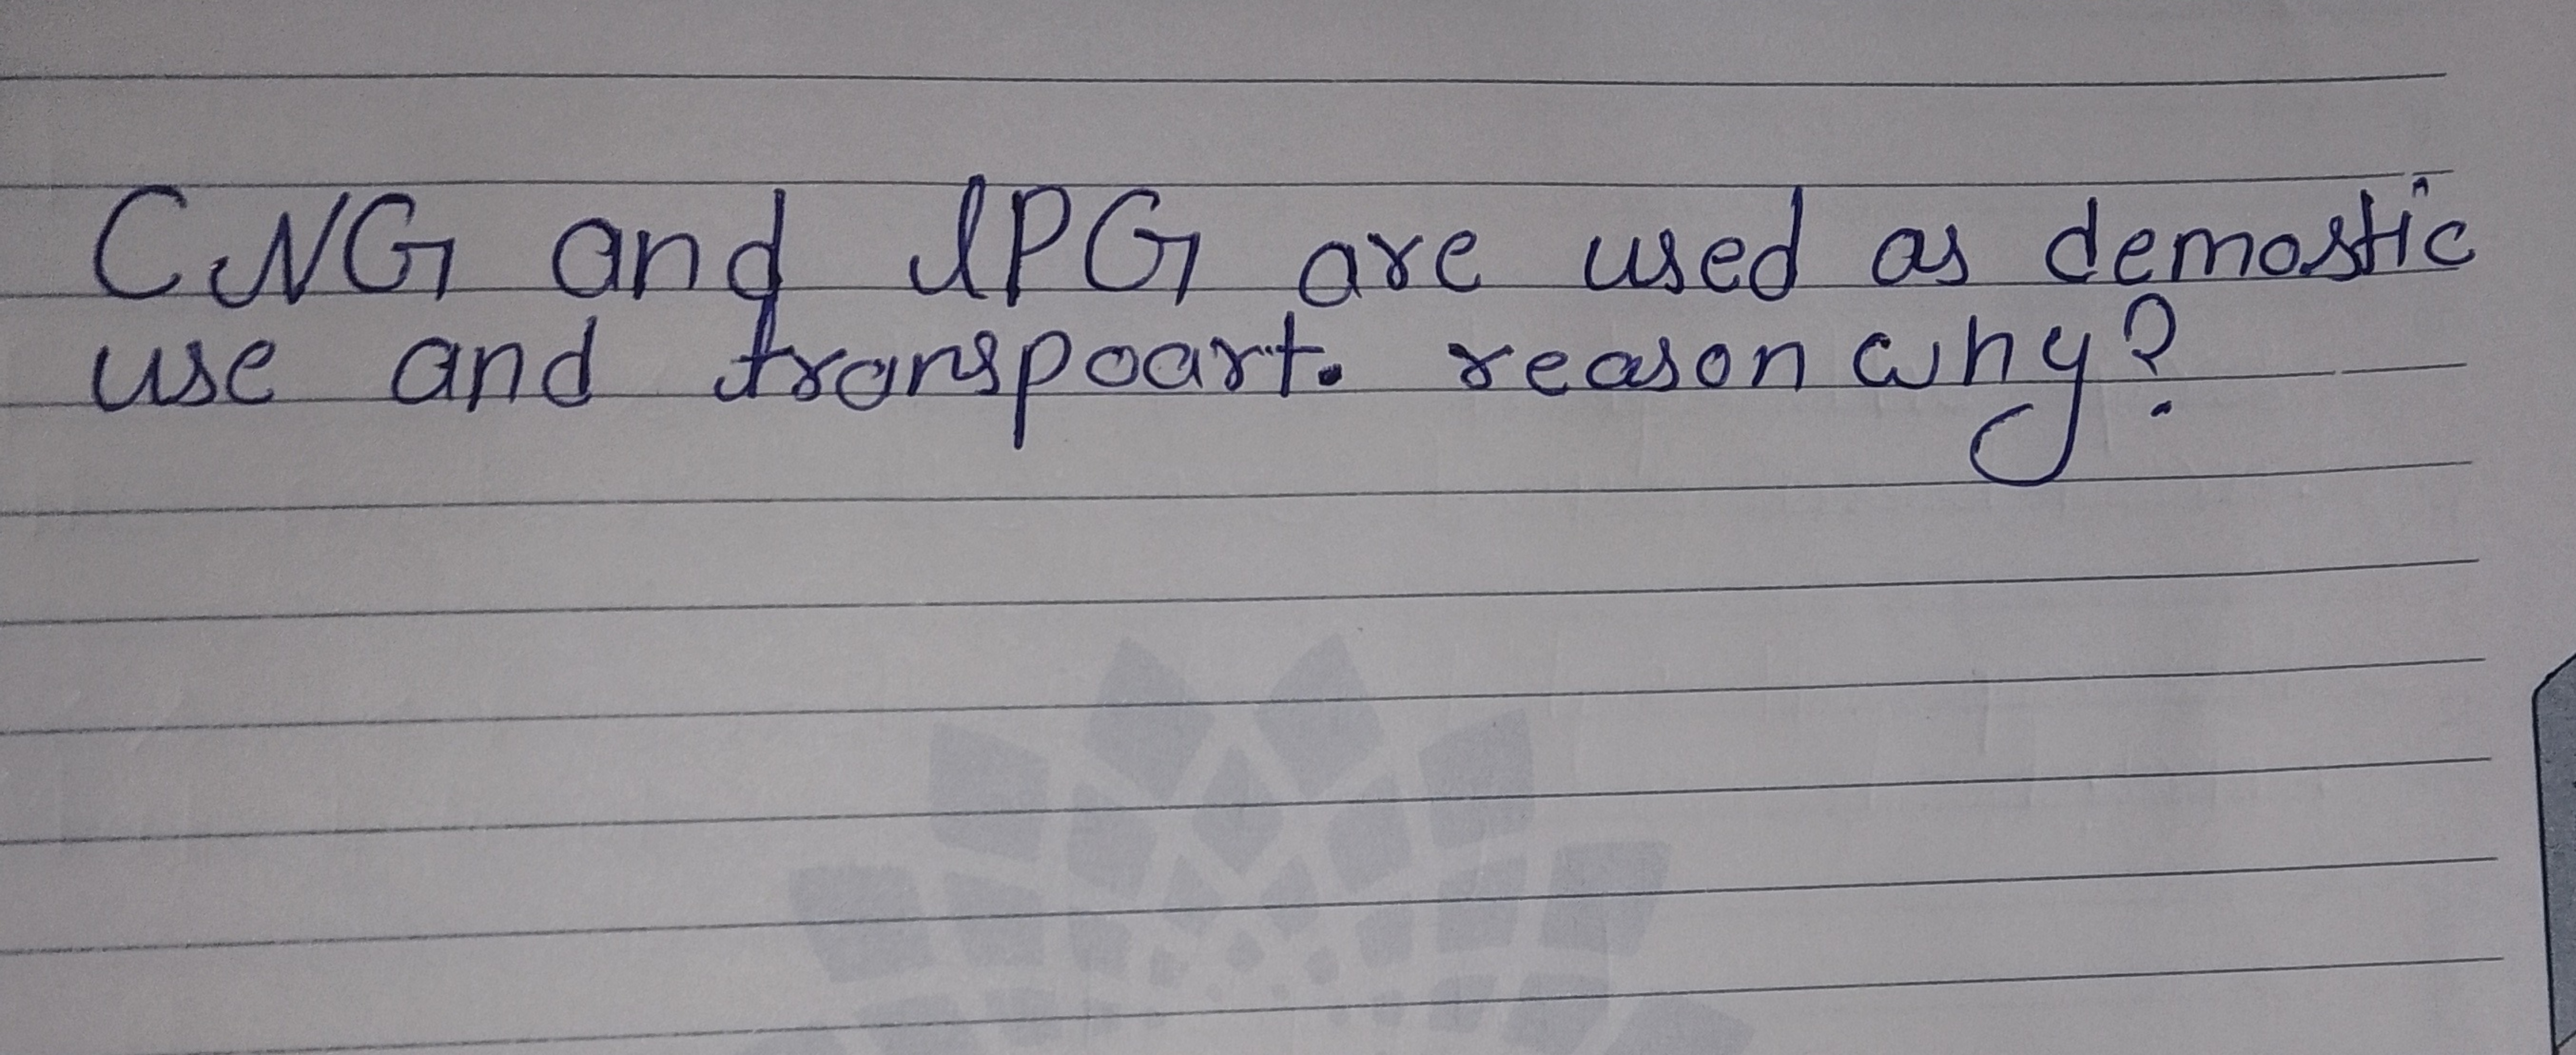 CNG and LPG are used as demostic
use and transpoart. reason why?